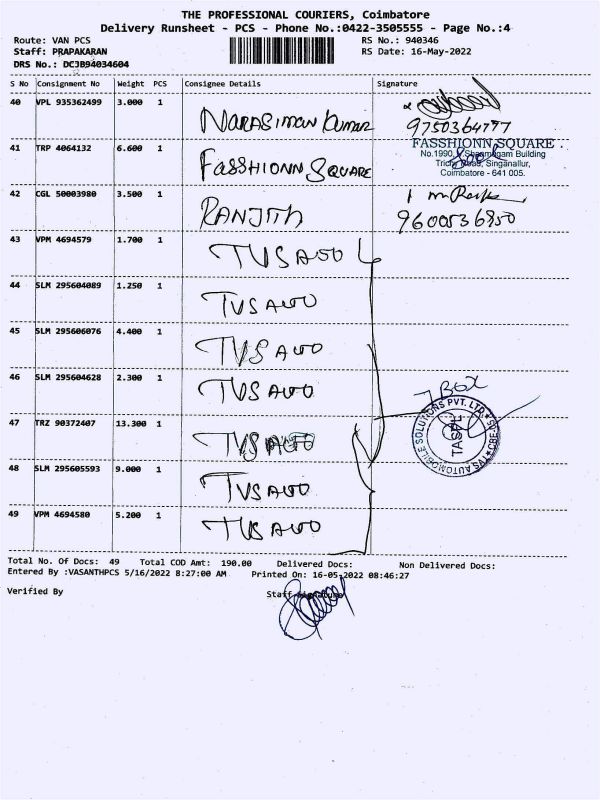 THE PROFESSIONAL COURIERS, Coimbatore
Delivery Runsheet - PCS - Phone No.:0422-3505555 - Page No.:4
Route: VAN PCS RS No.: 940346
Staff: PRAPAKARAN RS Date: 16-May-2022
DRS No.: DCJB94034604
S No Consignment No Weight PCS Consignee Details Signature
40 VPL 935362499 3.000 1 NARASIMAN KUMAR
9750364777
41 TRP 4064132 6.600 1 FASSHIONN SQUARE
FASSHIONN SQUARE
No.1990, Shanmugam Building
Trichy Road, Singanallur,
Coimbatore - 641 005.
42 CGL 50003980 3.500 1 RANJITH
9600536950
43 VPM 4694579 1.700 1 TVS AUTO
44 SLM 295604089 1.250 1 TVS AUTO
45 SLM 295606076 4.400 1 TVS AUTO
46 SLM 295604628 2.300 1 TVS AUTO
7 BOX
47 TRZ 90372407 13.300 1 TVS AUTO
TVS AUTOMOBILE SOLUTIONS PVT. LTD.
TASPL
48 SLM 295605593 9.000 1 TVS AUTO
49 VPM 4694580 5.200 1 TVS AUTO
Total No. Of Docs: 49 Total COD Amt: 190.00 Delivered Docs: Non Delivered Docs:
Entered By :VASANTHPCS 5/16/2022 8:27:00 AM Printed On: 16-05-2022 08:46:27
Verified By Staff Signature